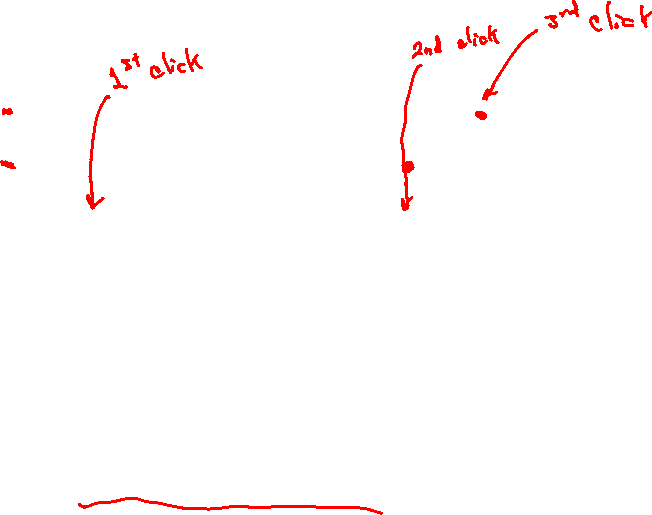 1st click
2nd click
3rd click